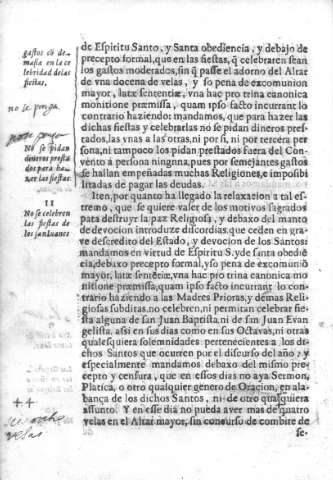 gastos cõ de-
masia en la ce
lebridad de las
fiestas.
no se ponga.
No se pidan
dineros presta
dos para ha-
zer las fiestas.
II
No se celebren
las fiestas de
los sanIuanes
++
velas
de Espiritu Santo, y Santa obediencia, y debajo de
precepto formal, que en las fiestas, q̃ celebraren sean
los gastos moderados, sin q̃ passe el adorno del Altar
de vna docena de velas, y so pena de excomunion
mayor, latæ sententiæ, vna hac pro trina canonica
monitione præmissa, quam ipso facto incurrant lo
contrario haziendo: mandamos, que para hazer las
dichas fiestas y celebrarlas no se pidan dineros pres-
tados, las vnas a las otras, ni por sì, ni por tercera per
sona, ni tampoco los pidan prestados fuera del Con-
vento à persona ningnna, pues por semejantes gastos
se hallan empeñadas muchas Religiones, e imposibi
litadas de pagar las deudas.
Iten, por quanto ha llegado la relaxacion a tal es-
tremo, que se quiere valer de los motivos sagrados
para destruyr la paz Religiosa, y debaxo del manto
de devocion introduze discordias, que ceden en gra-
ve descredito del Estado, y devocion de los Santos:
mandamos en virtud de Espiritu S. y de santa obediẽ
cia, debaxo precepto formal, y so pena de excomuniõ
mayor, latæ sentẽtiæ, vna hac pro trina canonica mo
nitione præmissa, quam ipso facto incurrant lo con-
trario haziendo a las Madres Prioras, y demas Reli-
giosas subditas, no celebren, ni permitan celebrar fie-
sta alguna de san Juan Baptista, ni de san Juan Evan
gelista, assi en sus dias como en sus Octavas, ni otras
qualesquiera solemnidades pertenecientes a los di-
chos Santos que ocurren por el discurso del año; y
especialmente mandamos debaxo del mismo pre-
cepto y censura, que en essos dias no aya Sermon,
Platica, o otro qualquier genero de Oracion, en ala-
bança de los dichos Santos, ni de otro qualquiera
assunto. Y en esse dia no pueda aver mas de quatro
velas en el Altar mayor, sin concurso de combite de
se-